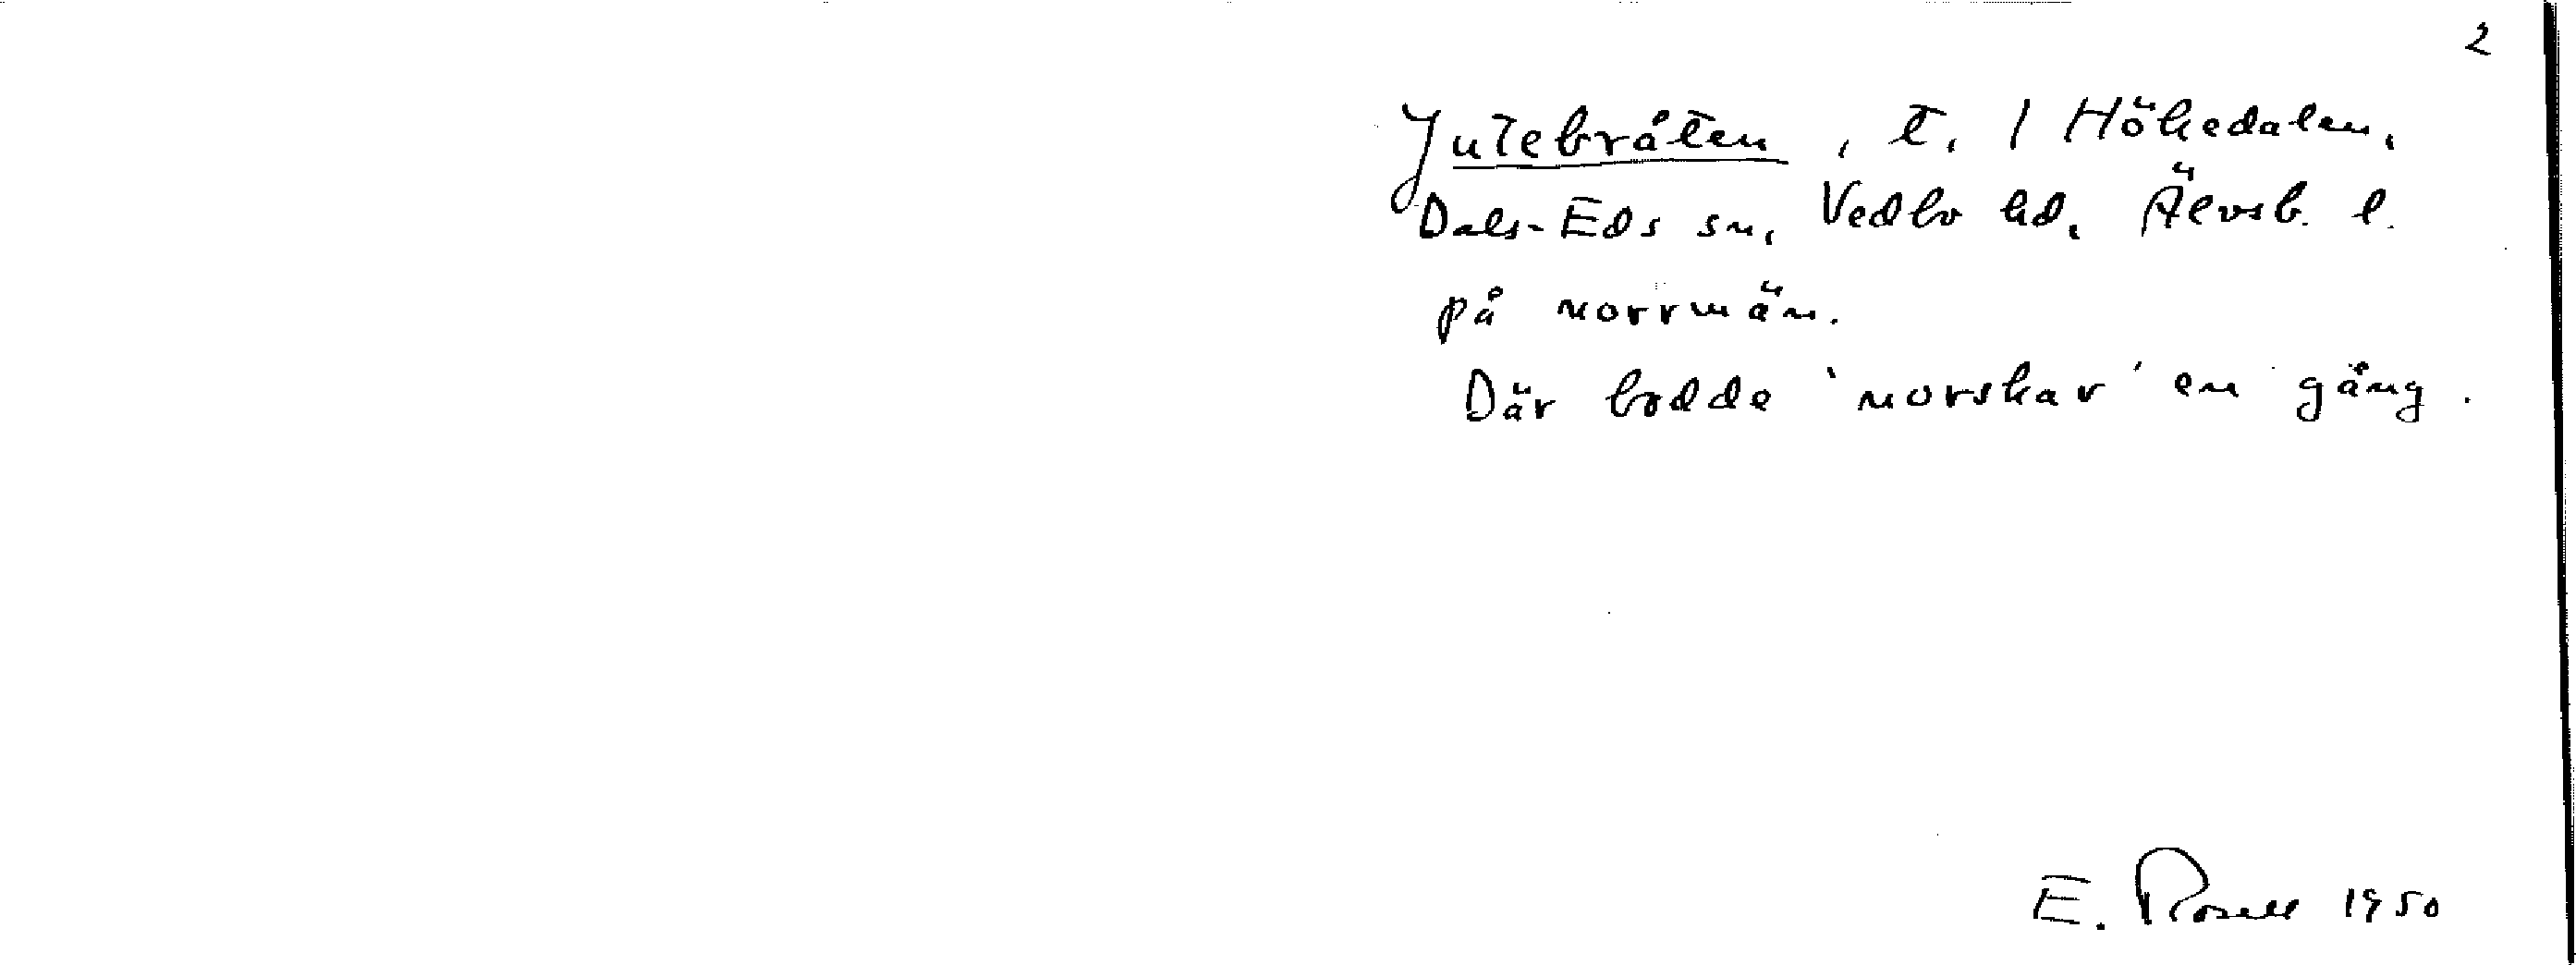 2
Jutebråten, t. / Hökedalen,
Dals-Eds sn, Vedbo hd, Älvsb. l.
på norrmän.
Där bodde 'norskar' en gång.
E. Rosell 1950